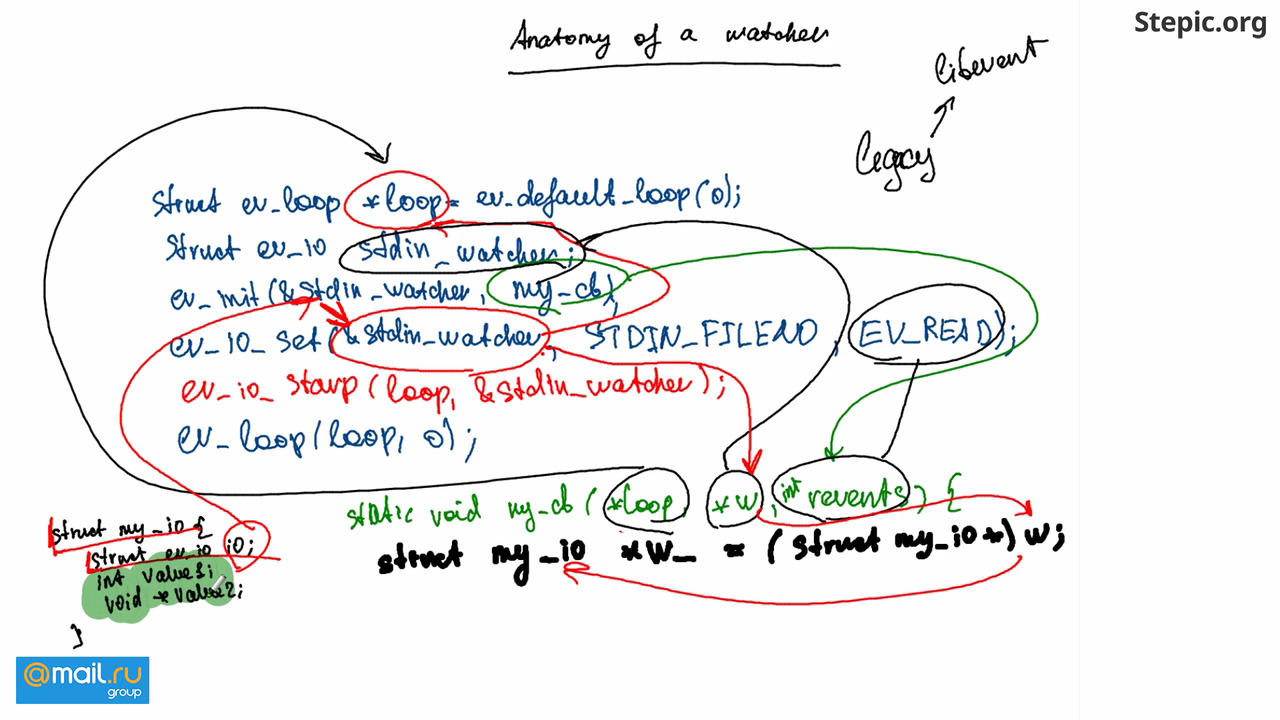 Stepic.org
Anatomy of a watcher
libevent
legacy
struct ev_loop *loop = ev_default_loop(0);
struct ev_io stdin_watcher;
ev_init(&stdin_watcher, my_cb);
ev_io_set(&stdin_watcher, STDIN_FILENO, EV_READ);
ev_io_starp(loop, &stdin_watcher);
ev_loop(loop, 0);
static void my_cb (*loop, *w, int revents) {
struct my_io *w_ = (struct my_io *) w;
struct my_io {
struct ev_io io;
int value1;
void *value2;
}
@mail.ru
group